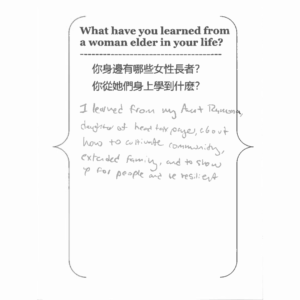 What have you learned from
a woman elder in your life?
你身邊有哪些女性長者?
你從她們身上學到什麼?
I learned from my Aunt
daughter of about
how to cultivate community,
extended family, and to show
up for people and be resilient